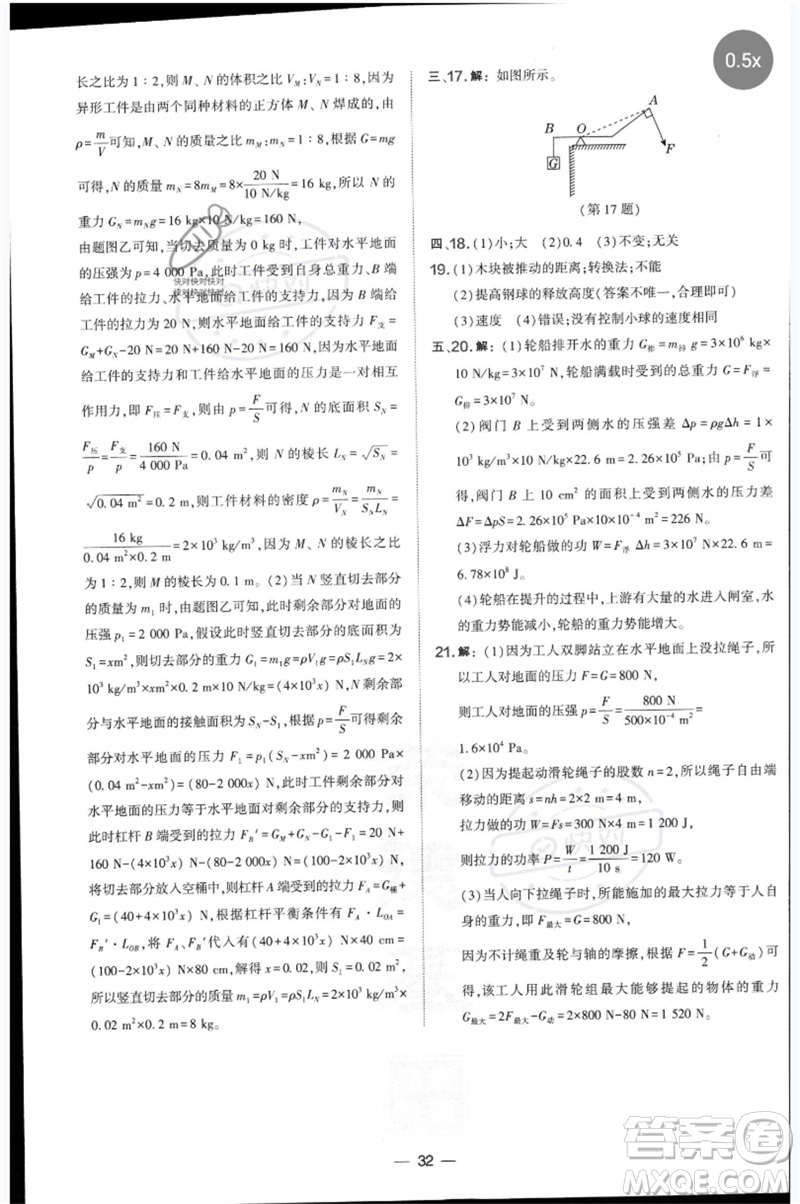 长之比为 1∶2，则 M、N 的体积之比 V_M∶V_N=1∶8，因为
异形工件是由两个同种材料的正方体 M、N 焊成的，由
ρ=m/V可知，M、N 的质量之比 m_M∶m_N=1∶8，根据 G=mg
可得，N 的质量 m_N=8m_M=8×20 N/10 N/kg=16 kg，所以 N 的
重力 G_N=m_Ng=16 kg×10 N/kg=160 N。
由题图乙可知，当切去质量为 0 kg 时，工件对水平地面
的压强 p=4 000 Pa，此时工件受到自身总重力、杠杆 B 端
给工件的拉力、水平地面给工件的支持力，杠杆 B 端
给工件的拉力为 20 N，则水平地面给工件的支持力 F支=
G_M+G_N-20 N=20 N+160 N-20 N=160 N。因为水平地面
给工件的支持力和工件给水平地面的压力是一对相互
作用力，即 F压=F支，则由 p=F/S可得，N 的底面积 S_N=
F压/p=F支/p=160 N/4 000 Pa=0.04 m²，所以 N 的棱长 L_N=√S_N=
√0.04 m²=0.2 m，则工件材料的密度 ρ=m_N/V_N=m_N/S_NL_N=
16 kg/0.04 m²×0.2 m=2×10³ kg/m³，因为 M、N 的棱长之比
为 1∶2，则 M 的棱长为 0.1 m。(2)当 N 竖直切去部分
的质量为 m₁时，由题图乙可知，此时剩余部分对地面的
压强 p₁=2 000 Pa，假设此时竖直切去部分的底面积为
S₁=xm²，则切去部分的重力 G₁=m₁g=ρV₁g=ρS₁L_Ng=2×
10³ kg/m³×xm²×0.2 m×10 N/kg=(4×10³x) N，N 剩余部
分与水平地面的接触面积变为 S_N-S₁，根据 p=F/S可得剩余
部分对水平地面的压力 F₁=p₁(S_N-xm²)=2 000 Pa×
(0.04 m²-xm²)=(80-2 000x) N，因此工件剩余部分对
地面的压力等于水平地面对剩余部分的支持力，所以
此时杠杆 B 端受到的拉力 F_B′=G_M+G_N-G₁-F₁=20 N+
160 N-(4×10³x) N-(80-2 000x) N=(100-2×10³x) N。
将切去部分放入空桶中，则 A 端受到的拉力 F_A=G桶+
G₁=(40+4×10³x) N，根据杠杆平衡条件有 F_A·L_OA=
F_B′·L_OB，将 F_A、F_B′代入有(40+4×10³x) N×40 cm=
(100-2×10³x) N×80 cm，解得 x=0.02，则 S₁=0.02 m²，
所以竖直切去部分的质量 m₁=ρV₁=ρS₁L_N=2×10³ kg/m³×
0.02 m²×0.2 m=8 kg。
0.5x
三、17. 解：如图所示。
A
B O
G F
(第 17 题)
四、18. (1)小；大 (2)0.4 (3)不变；无关
19. (1)木块被推动的距离；转换法；不能
(2)提高钢球的释放高度(答案不唯一，合理即可)
(3)速度 (4)错误；没有控制小球的速度相同
五、20. 解：(1)轮船排开水的重力 G排=m排 g=3×10⁶ kg×
10 N/kg=3×10⁷ N，轮船满载时受到的总重力 G=F浮=
G排=3×10⁷ N。
(2)阀门 B 上受到两侧水的压强差 Δp=ρgΔh=1×
10³ kg/m³×10 N/kg×22.6 m=2.26×10⁵ Pa；由 p=F/S可
得，阀门 B 上 10 cm² 的面积上受到两侧水的压力差
ΔF=ΔpS=2.26×10⁵ Pa×10×10⁻⁴ m²=226 N。
(3)浮力对轮船做的功 W=F浮 Δh=3×10⁷ N×22.6 m=
6.78×10⁸ J。
(4)轮船在提升的过程中，上游有大量的水进入闸室，水
的重力势能减小，轮船的重力势能增大。
21. 解：(1)因为工人双脚站立在水平地面上没拉绳子，所
以工人对地面的压力 F=G=800 N，
则工人对地面的压强 p=F/S=800 N/500×10⁻⁴ m²=
1.6×10⁴ Pa。
(2)因为提起动滑轮绳子的股数 n=2，所以绳子自由端
移动的距离 s=nh=2×2 m=4 m，
拉力做的功 W=Fs=300 N×4 m=1 200 J，
则拉力的功率 P=W/t=1 200 J/10 s=120 W。
(3)当人向下拉绳子时，所能施加的最大拉力等于人自
身的重力，即 F最大=G=800 N，
因为不计绳重及轮与轴的摩擦，根据 F=1/2(G+G动)可
得，该工人用此滑轮组最大能够提起的物体的重力
G最大=2F最大-G动=2×800 N-80 N=1 520 N。
快对快对快对
快对快对快对
快对
— 32 —
答案卷
MXQE.COM